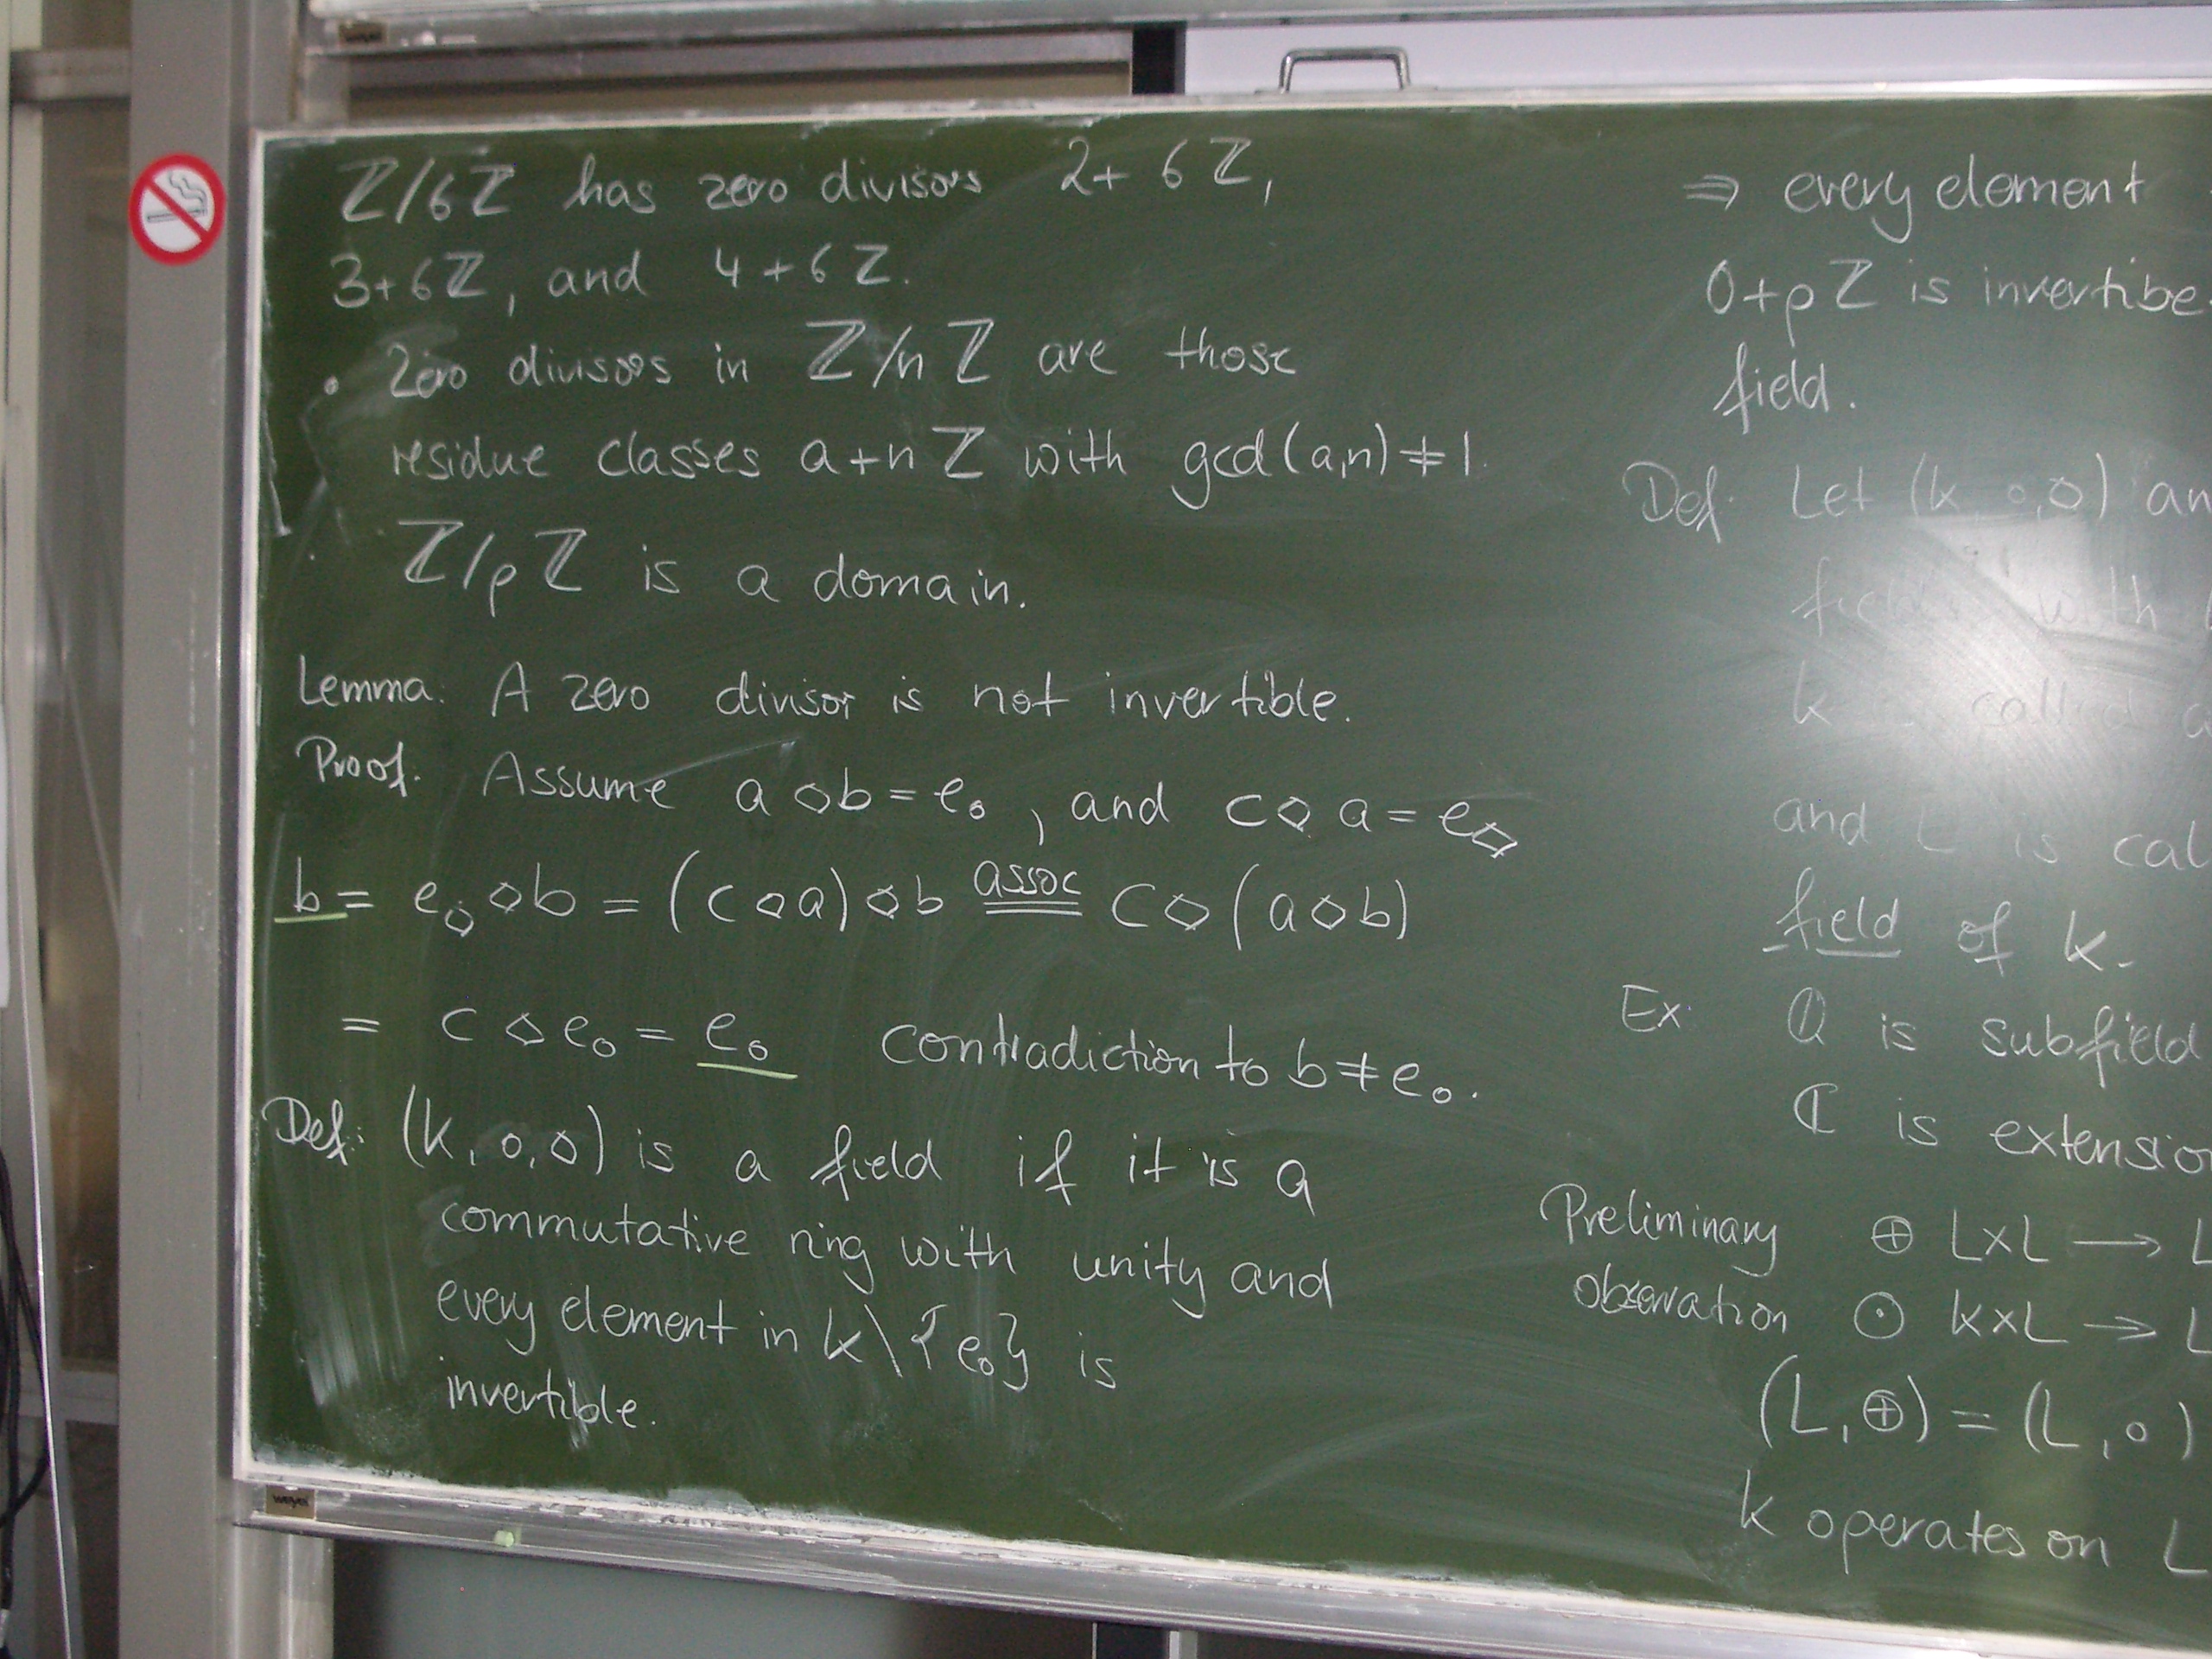 ℤ/6ℤ has zero divisors 2+6ℤ,
3+6ℤ, and 4+6ℤ.
• Zero divisors in ℤ/nℤ are those
residue classes a+nℤ with gcd(a,n)≠1.
ℤ/pℤ is a domain.
Lemma: A zero divisor is not invertible.
Proof: Assume a◇b=e∘, and c◇a=e◇
b = e◇◇b = (c◇a)◇b assoc = c◇(a◇b)
= c◇e∘ = e∘ contradiction to b≠e∘.
Def: (K,∘,◇) is a field if it is a
commutative ring with unity and
every element in K\{e∘} is
invertible.
⇒ every element
0+pℤ is invertibe
field.
Def: Let (K,∘,◇) an
field with
K called a
and L is cal
field of K.
Ex: ℚ is subfield
ℂ is extensio
Preliminary ⊕ L×L → L
observation ⊙ K×L → L
(L,⊕) = (L,∘)
K operates on L
weyel